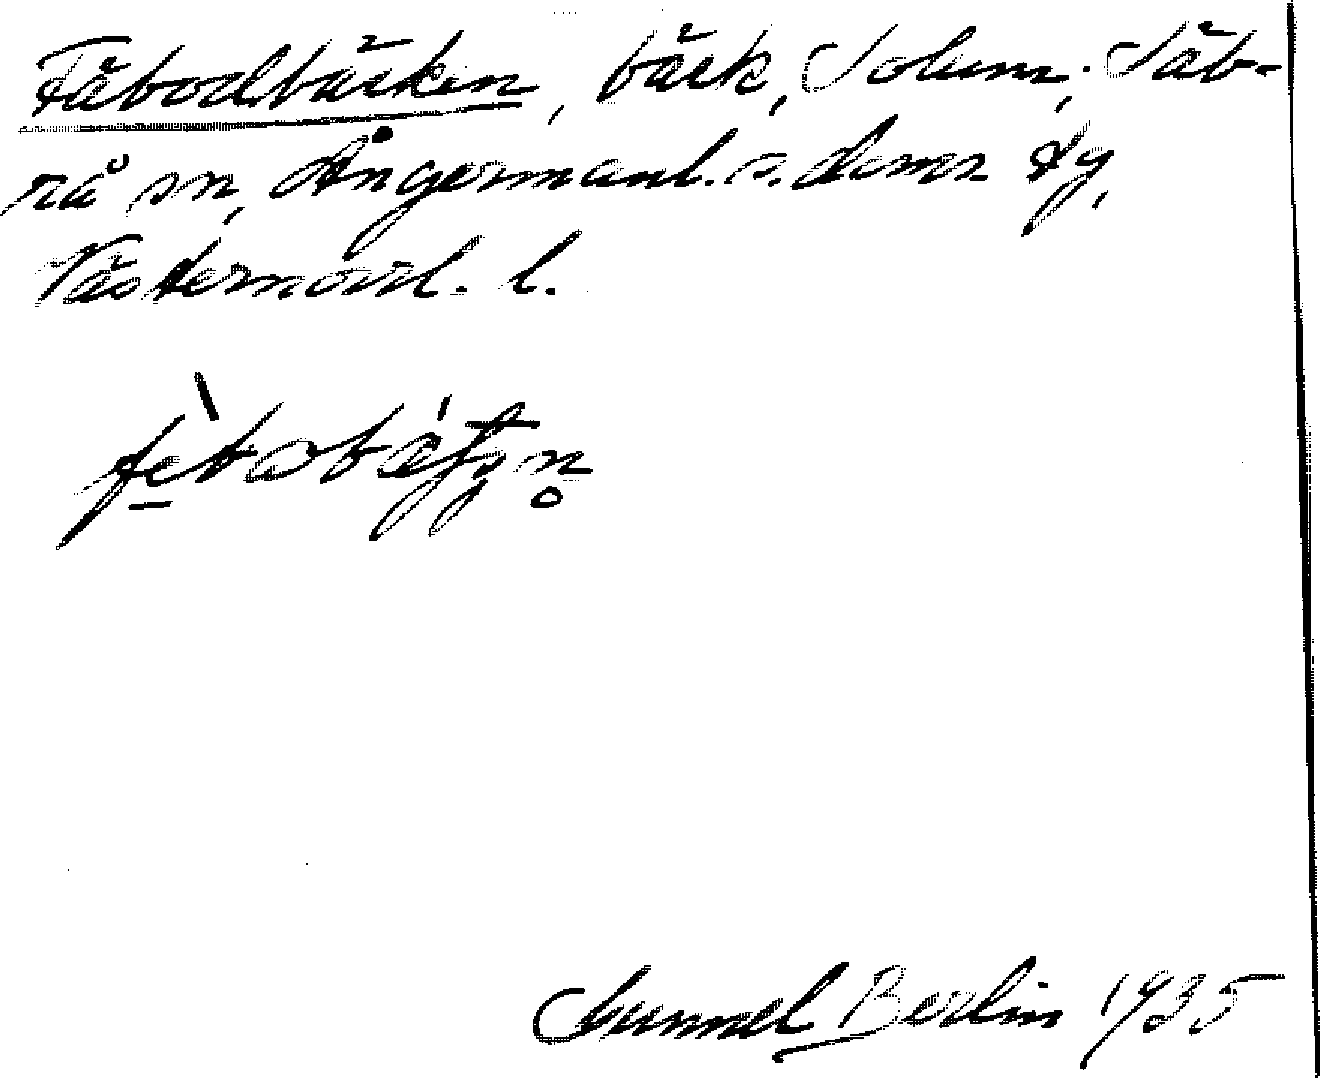 Fäbodbäcken, bäck, Solum, Säb-
rå sn, Ångermanl. s. doms tg,
Västernorrl. l.
Gunnel Berlin 1935